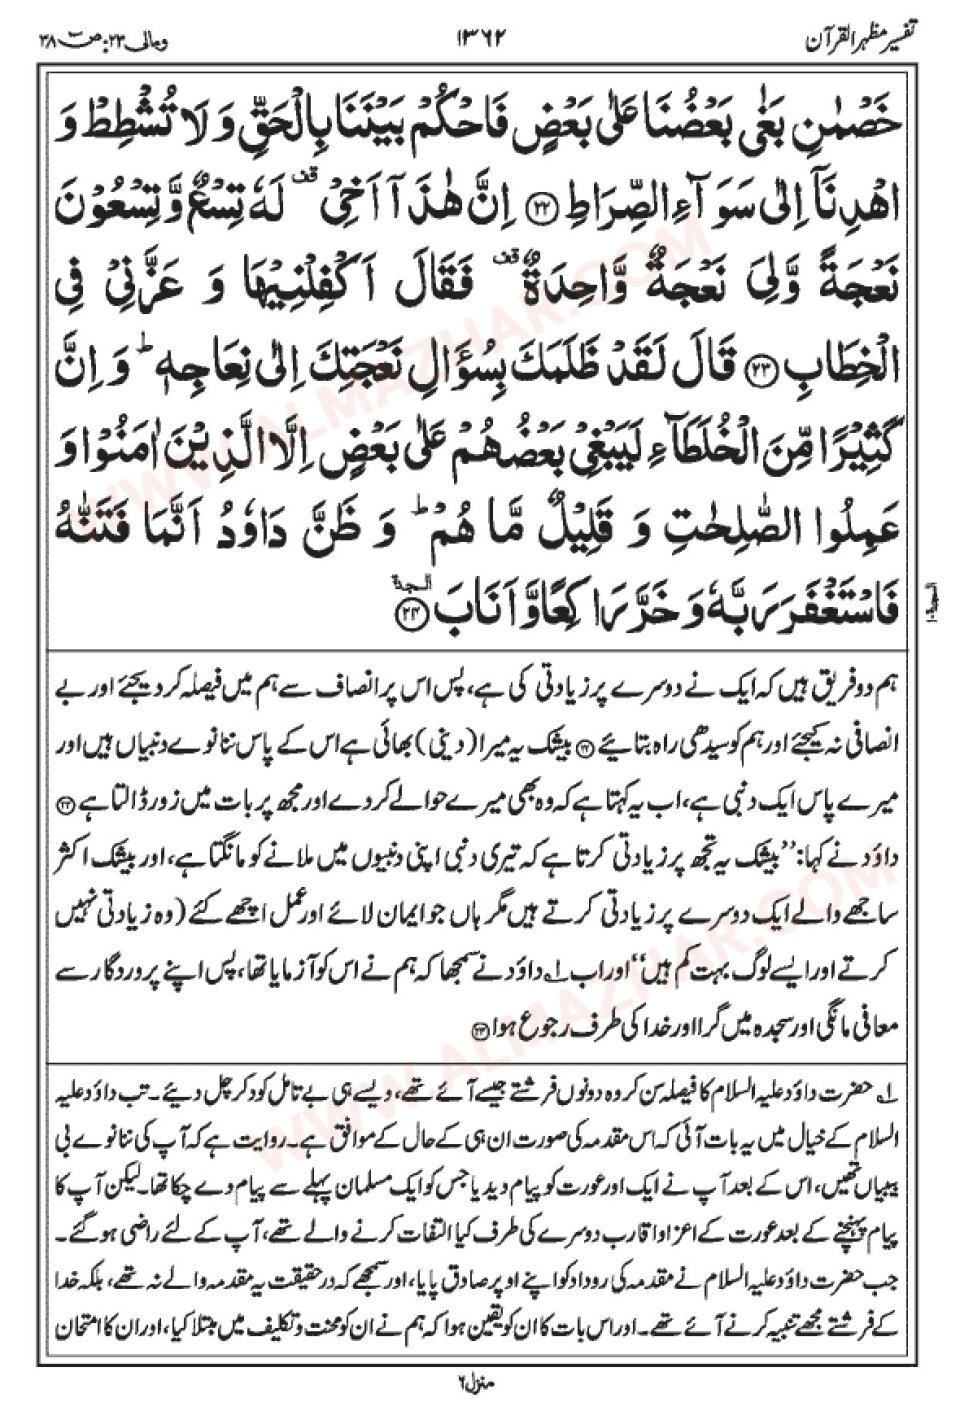 تفسیر مظہر القرآن ۱۳۶۲ ومالی ۲۳: ص ۳۸
خَصْمٰنِ بَغٰى بَعْضُنَا عَلٰى بَعْضٍ فَاحْكُمْ بَيْنَنَا بِالْحَقِّ وَلَا تُشْطِطْ وَ
اهْدِنَآ اِلٰى سَوَآءِ الصِّرَاطِ ﴿۲۲﴾ اِنَّ هٰذَآ اَخِىْ ۟قف لَهٗ تِسْعٌ وَّتِسْعُوْنَ
نَعْجَةً وَّلِىَ نَعْجَةٌ وَّاحِدَةٌ ۟قف فَقَالَ اَكْفِلْنِيْهَا وَ عَزَّنِىْ فِى
الْخِطَابِ ﴿۲۳﴾ قَالَ لَقَدْ ظَلَمَكَ بِسُؤَالِ نَعْجَتِكَ اِلٰى نِعَاجِهٖ ؕ وَ اِنَّ
كَثِيْرًا مِّنَ الْخُلَطَآءِ لَيَبْغِىْ بَعْضُهُمْ عَلٰى بَعْضٍ اِلَّا الَّذِيْنَ اٰمَنُوْا وَ
عَمِلُوا الصّٰلِحٰتِ وَ قَلِيْلٌ مَّا هُمْ ؕ وَ ظَنَّ دَاوٗدُ اَنَّمَا فَتَنّٰهُ
فَاسْتَغْفَرَ رَبَّهٗ وَ خَرَّ رَاكِعًا وَّ اَنَابَ ﴿۲۴﴾ السجدة
السجدة ۱۰
ہم دو فریق ہیں کہ ایک نے دوسرے پر زیادتی کی ہے، پس اس پر انصاف سے ہم میں فیصلہ کر دیجئے اور بے
انصافی نہ کیجئے اور ہم کو سیدھی راہ بتائیے ﴿۲۲﴾ بیشک یہ میرا (دینی) بھائی ہے اس کے پاس ننانوے دنبیاں ہیں اور
میرے پاس ایک دنبی ہے، اب یہ کہتا ہے کہ وہ بھی میرے حوالے کر دے اور مجھ پر بات میں زور ڈالتا ہے ﴿۲۳﴾
داؤد نے کہا: ’’بیشک یہ تجھ پر زیادتی کرتا ہے کہ تیری دنبی اپنی دنبیوں میں ملانے کو مانگتا ہے، اور بیشک اکثر
ساجھے والے ایک دوسرے پر زیادتی کرتے ہیں مگر ہاں جو ایمان لائے اور عمل اچھے کئے (وہ زیادتی نہیں
کرتے اور ایسے لوگ بہت کم ہیں‘‘ اور اب ۱؎ داؤد نے سمجھا کہ ہم نے اس کو آزمایا تھا، پس اپنے پروردگار سے
معافی مانگی اور سجدہ میں گرا اور خدا کی طرف رجوع ہوا ﴿۲۴﴾
۱؎ حضرت داؤد علیہ السلام کا فیصلہ سن کر وہ دونوں فرشتے جیسے آئے تھے، ویسے ہی بے تامل کود کر چل دیئے۔ تب داؤد علیہ
السلام کے خیال میں یہ بات آئی کہ اس مقدمہ کی صورت ان ہی کے حال کے موافق ہے۔ روایت ہے کہ آپ کی ننانوے بی
بیبیاں تھیں، اس کے بعد آپ نے ایک اور عورت کو پیام دیدیا جس کو ایک مسلمان پہلے سے پیام دے چکا تھا۔ لیکن آپ کا
پیام پہنچنے کے بعد عورت کے اعزا و اقارب دوسرے کی طرف کیا التفات کرنے والے تھے، آپ کے لئے راضی ہو گئے۔
جب حضرت داؤد علیہ السلام نے مقدمہ کی روداد کو اپنے اوپر صادق پایا، اور سمجھے کہ در حقیقت یہ مقدمہ والے نہ تھے، بلکہ خدا
کے فرشتے مجھے تنبیہ کرنے آئے تھے۔ اور اس بات کا ان کو یقین ہوا کہ ہم نے ان کو محنت و تکلیف میں مبتلا کیا، اور ان کا امتحان
منزل ۶
WWW.ALMAZHAR.COM
WWW.ALMAZHAR.COM